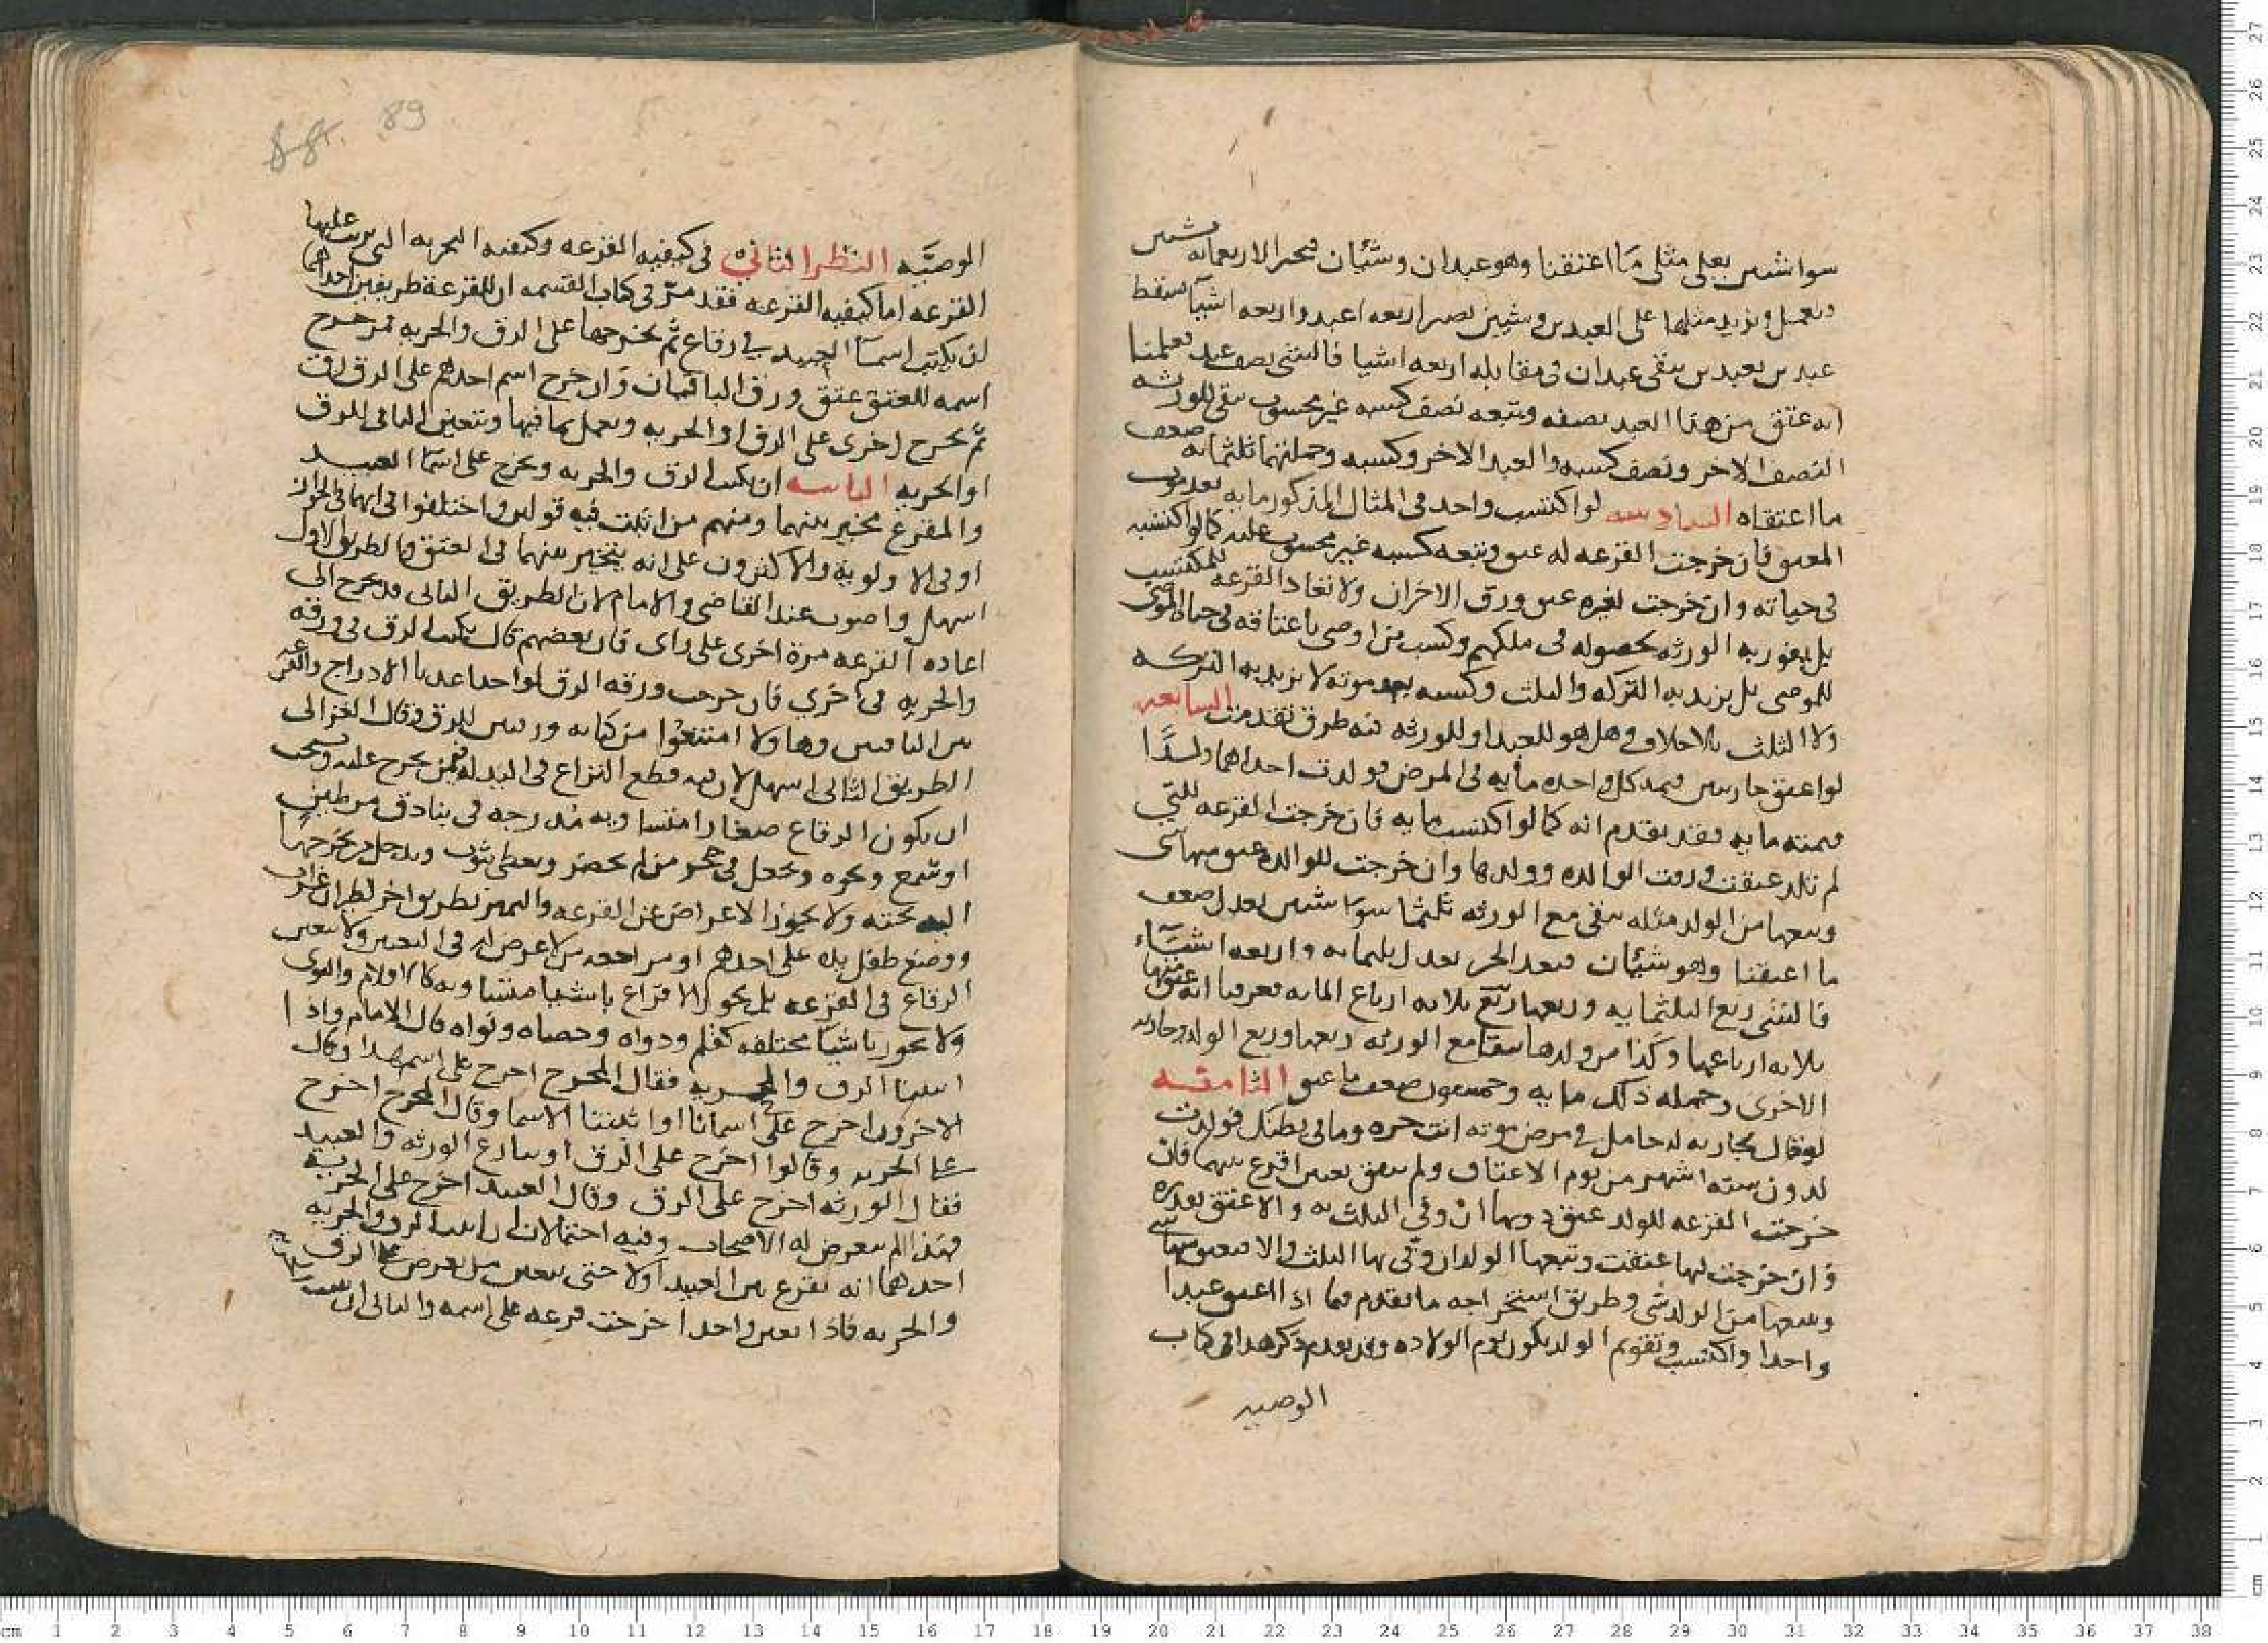 سوا شيين يعدل مثلي ما اعتقنا وهو عبدان وشيئان فنجبر الاربعمايه بشيين
ويعمل ونزيد مثلها على العبدين وشيين يصير اربعه اعبد واربعه اشيا فنسقط
عبدين بعبدين يبقى عبدان في مقابله اربعه اشيا فالشئ نصف عبد فعلمنا
انه عتق من هذا العبد نصفه وتبعه نصف كسبه غير محسوب يبقى للورثه
النصف الاخر ونصف كسبه والعبد الاخر وكسبه وجملتها ثلثمايه ضعف
ما اعتقناه السادسه لو اكتسب واحد في المثال المذكور مايه بعد موت
المعتق فان خرجت القرعه له عتق وتبعه كسبه غير محسوب عليه كما لو اكتسبه
في حياته وان خرجت لغيره عتق ورق الاخران ولا تعاد القرعه للمكتسب
بل يفوز به الورثه لحصوله في ملكهم وكسب من اوصى باعتاقه في حياة الموصي
للموصى بل يزيد به التركه والثلث وكسبه بعد موته لا يزيد به التركه
ولا الثلث بلا خلاف وهل هو للعبد او للورثه فيه طرق تقدمت السابعه
لو اعتق جاريتين قيمه كل واحده مايه في المرض فولدت احداهما ولدًا
قيمته مايه فقد تقدم انه كما لو اكتسب مايه فان خرجت القرعه للتي
لم تلد عتقت ورقت الوالده وولدها وان خرجت للوالده عتق منها شئ
وتبعها من الولد مثله يبقى مع الورثه ثلثمايه سوا شيين يعدل ضعف
ما اعتقنا وهو شيئان فبعد الجبر يعدل ثلثمايه واربعه اشياء
فالشئ ربع الثلثمايه وربعها ثلاثه ارباع المايه فعرفنا انه عتق منها
ثلاثه ارباعها وكذا من ولدها يبقى مع الورثه ربعها وربع الولد وجاريه
الاخرى وجمله ذلك مايه وخمسون ضعف ما عتق الثامنه
لو قال لجاريه له حامل في مرض موته انت حره وما في بطنك فولدت
لدون سته اشهر من يوم الاعتاق ولم يبق بعتق اقرع بينهما فان
خرجت القرعه للولد عتق دونها ان وفى الثلث به والا عتق بعضه
وان خرجت لها عتقت وتبعها الولد ان وفى بها الثلث والا فيعتق منها شئ
وتبعها من الولد شئ وطريق استخراجه ما تقدم فيما اذا اعتق عبدا
واحدا واكتسب وتقويم الولد يكون يوم الولاده وقد تقدم ذكر هذا في كتاب
الوصيه
89
الوصيَّه النظر الثاني في كيفيه القرعه وكيفيه التجزيه التي ترتب عليها
القرعه اما كيفيه القرعه فقد مرّ في كتاب القسمه ان للقرعة طريقين احداهما
ان يكتب اسمآ العبيد في رقاع ثم يخرجها على الرق والحريه فمن خرج
اسمه للعتق عتق ورق الباقيان وان خرج اسم احدهم على الرق رق
ثم يخرج اخرى على الرق او الحريه ويعمل بما فيها ويتعين الباقي للرق
او الحريه الثانيه ان يكتب الرق والحريه ويخرج على اسمآ العبيد
والمقرع مخير بينهما ومنهم من اثبت فيه قولين واختلفوا في انهما في الجواز
او في الاولوية والاكثرون على انه يتخير بينهما في العتق والطريق الاول
اسهل واصوب عند القاضي والامام لان الطريق الثاني قد يحوج الى
اعاده القرعه مرة اخرى على راى فان بعضهم قال يكتب الرق في ورقه
والحريه في اخرى فان خرجت ورقه الرق لواحد اعدنا الادراج والقرعه
بين الباقيين وهاولا امتنعوا من كتابه ورقتين للرق وقال الغزالى
الطريق الثاني اسهل لان فيه قطع النزاع في البدايه بمن يخرج عليه ويستحب
ان يكون الرقاع صغارا متساويه مُدرجه في بنادق من طين
او شمع ونحوه وتجعل في حجر من لم يحضر ويغطى بثوب ويدخل من يخرجها
اليد تحته ولا يجوز الاعراض عن القرعه والتمييز بطريق اخر لطيران غراب
ووضع طفل يده على احدهم او مراجعه من لا غرض له في التعيين ولا يتعين
الرقاع في القرعه بل يجوز الاقراع باشيا متساويه كاقلام والنوى
ولا يجوز باشيآ مختلفه كقلم ودواه وحصاه ونواه قال الامام واذا
اثبتنا الرق والحريه فقال المخرج اخرج على اسم هذا وقال
الاخرون اخرج على اسمائنا او اثبتنا الاسما وقال المخرج اخرج
على الحريه وقالوا اخرج على الرق او تنازع الورثه والعبيد
فقال الورثه اخرج على الرق وقال العبيد اخرج على الحريه
فهذا لم يتعرض له الاصحاب وفيه احتمالان ان اثبتنا الرق والحريه
احدهما انه يقرع بين العبيد اولا حتى يتعين من يعرض على الرق
والحريه فاذا تعين واحدا خرجت قرعه على اسمه والثاني ان